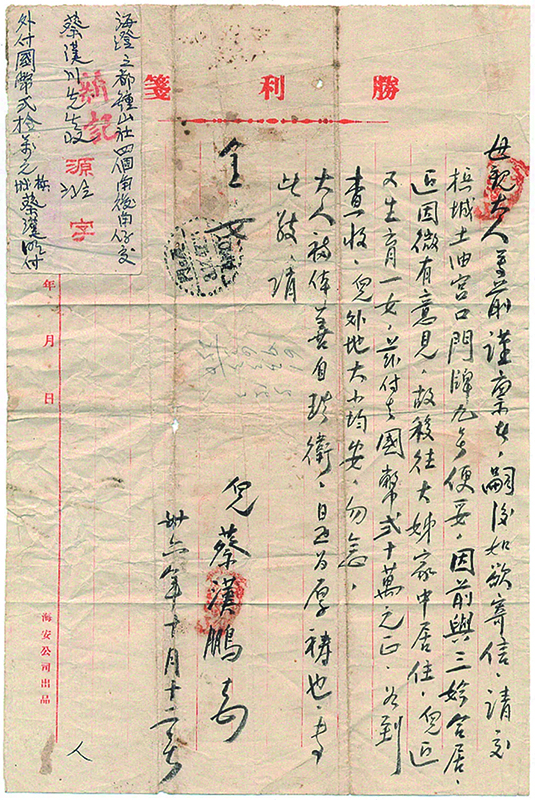 勝利箋
母親大人尊前謹稟者，嗣後如欲寄信，請交
檳城土油宮口門牌九号便妥，因前與三妗合居，
近因微有意見，故移往大姊家中居住，兒近
又生育一女，茲付去國幣弍十萬元正，为到
查收，兒外地大小均安，勿念，
大人福体善自珍衛，是為厚禱也，專
此敬請
金安
兒蔡漢鵬
卅六年十月十二号
海澄三都鍾山社
蔡漢川先生收
外付國幣弍拾萬元
檳城蔡漢鵬付
新記
源
字
年月日
海安公司出品
人